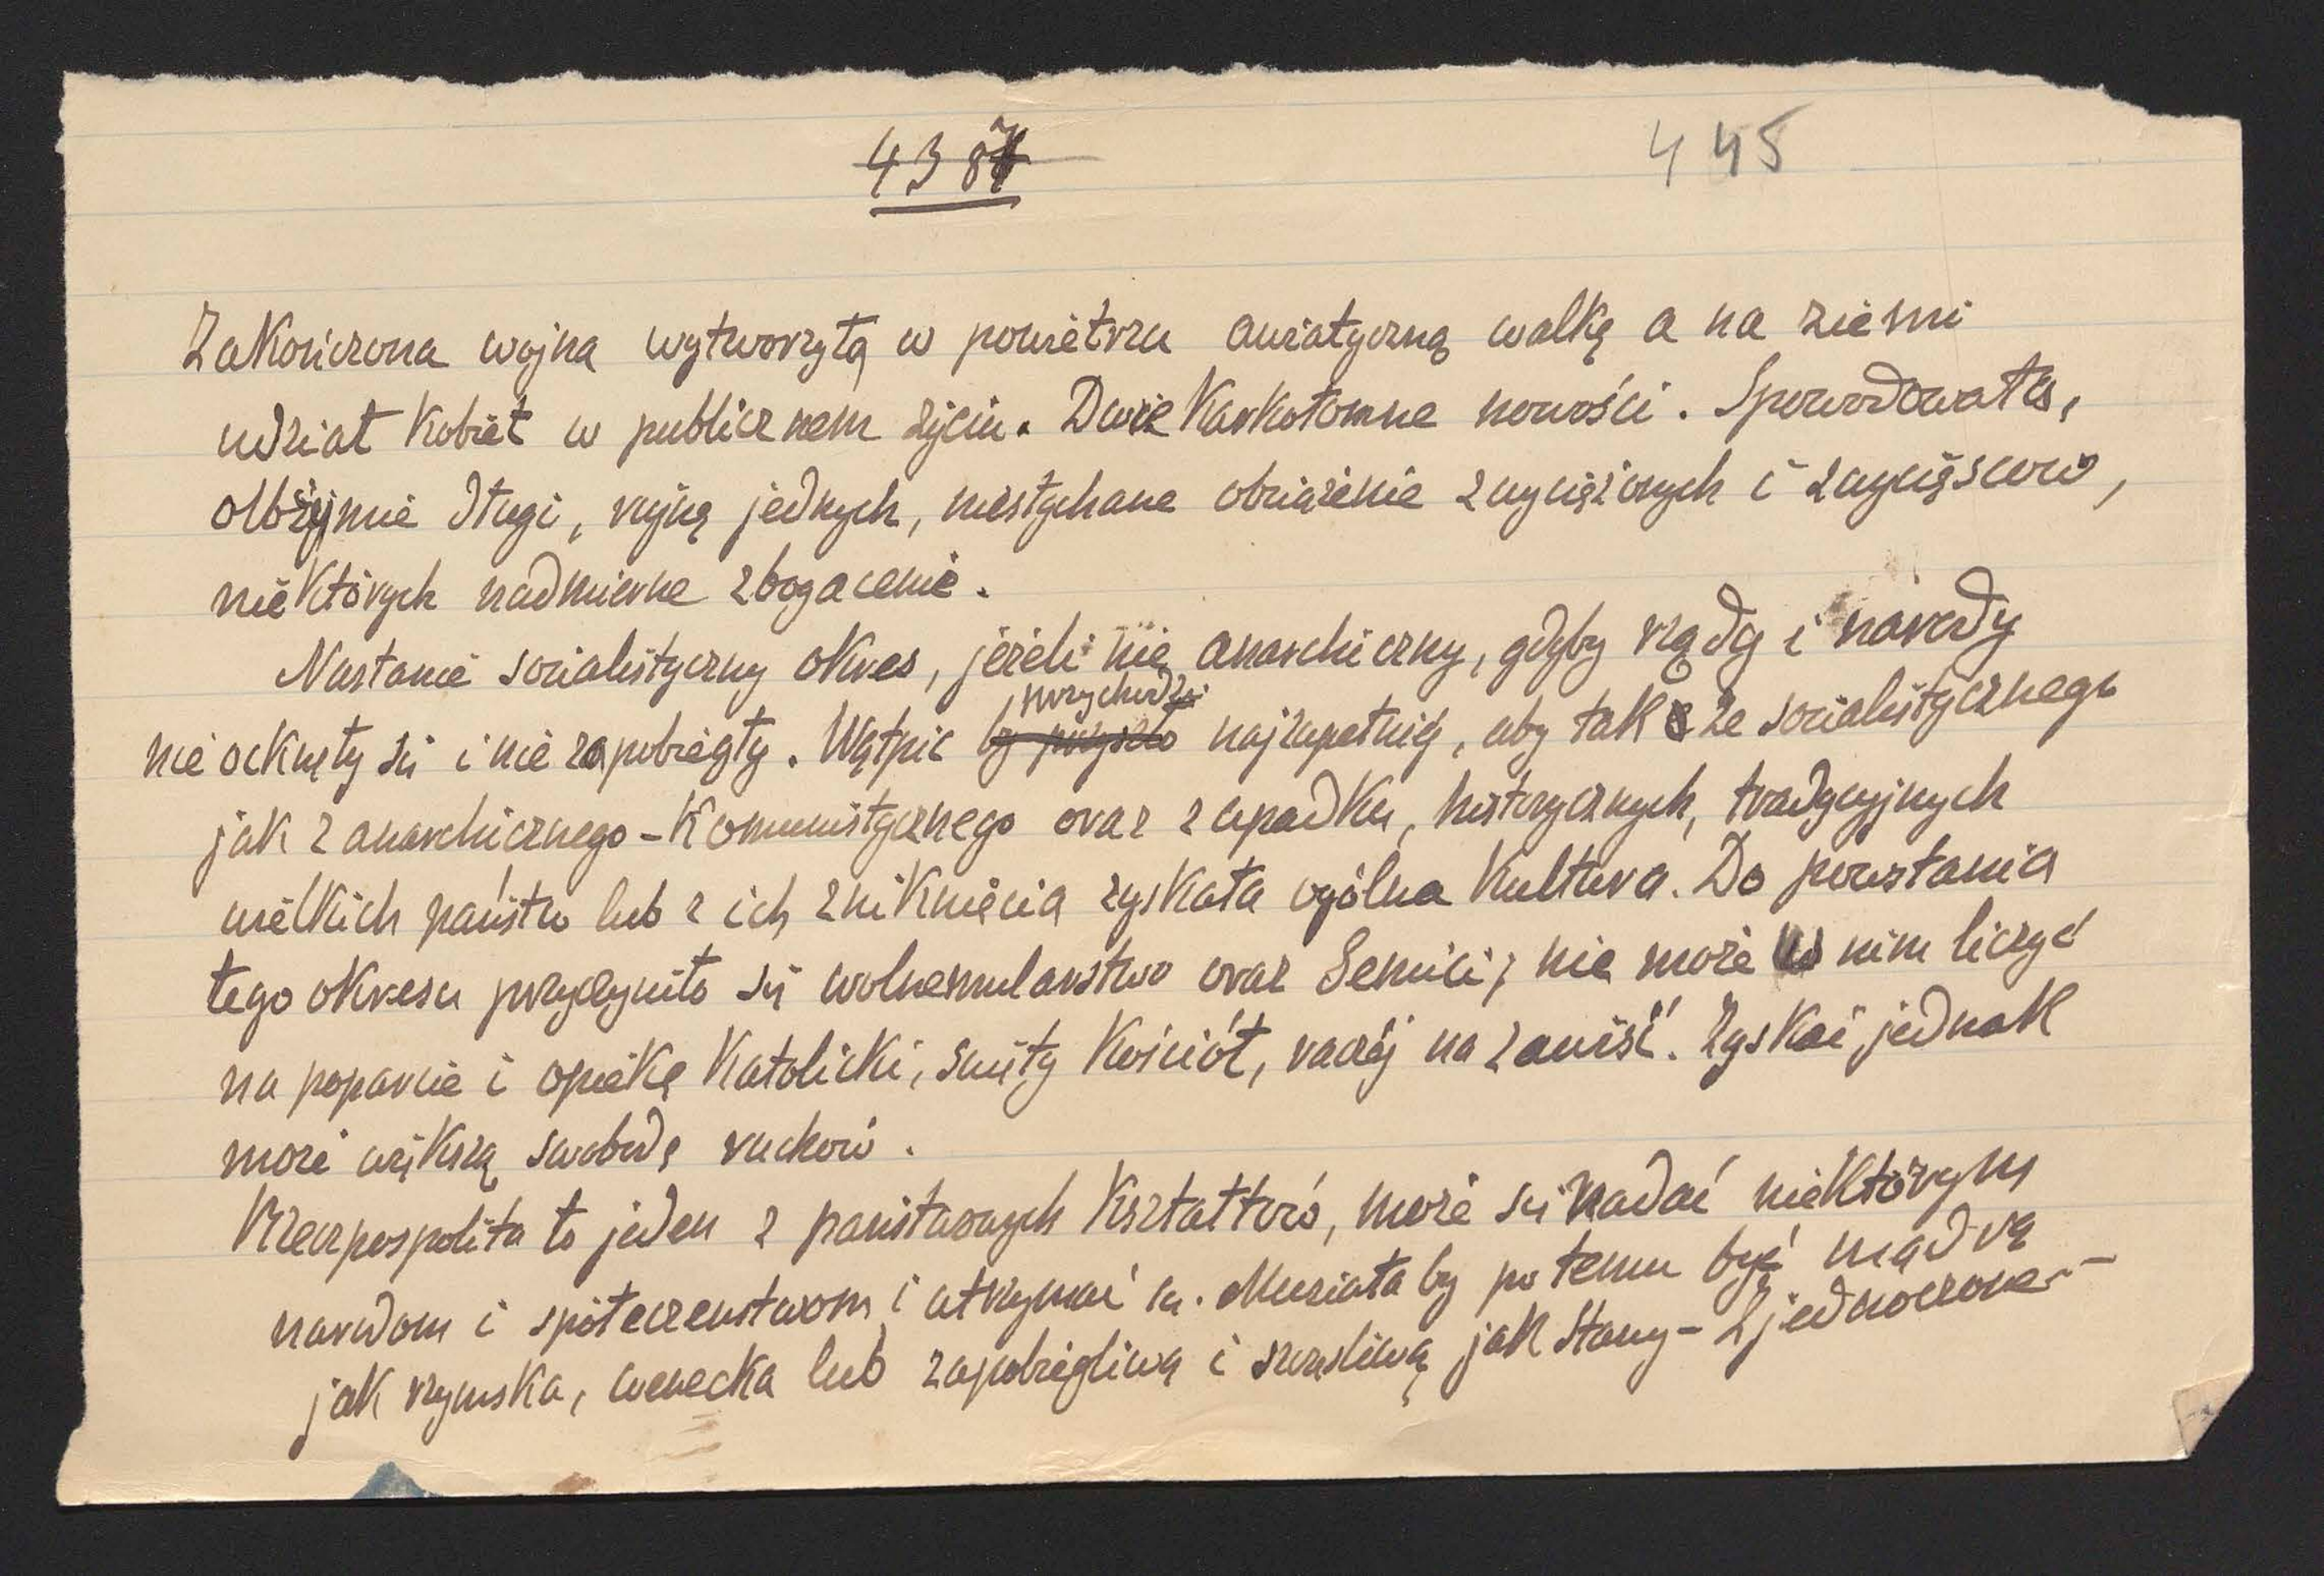 4387
445
Zakończona wojna wytworzyła w powietrzu awiatyczną walkę a na ziemi
udział kobiet w publicznem życiu. Dwie karkołomne nowości. Spowodowała,
olbrzymie długi, rujnę jednych, niesłychane obciążenie zwyciężonych i zwycięsców,
niektórych nadmierne zbogacenie.
Nastanie socialistyczny okres, jeżeli nie anarchiczny, gdyby rządy i narody
przychodzi
nie ocknęły się i nie zapobiegły. Wątpić by przyszło najzupełniej, aby tak ze socialistycznego
jak z anarchicznego-komunistycznego oraz z upadku, historycznych, tradycyjnych
wielkich państw lub z ich zniknięcia zyskała ogólna kultura. Do powstania
tego okresu przyczyniło się wolnemularstwo oraz Semici; nie może w nim liczyć
na poparcie i opiekę katolicki, święty kościół, raczej na zawiść. Zyskać jednak
może większą swobodę ruchów.
Rzeczpospolita to jeden z państwowych kształtów, może się nadać niektórym
narodom i społeczeństwom i utrzymać się. Musiała by po temu być mądrą
jak rzymska, wenecka lub zapobiegliwą i szczęśliwą jak Stany-Zjednoczone.-